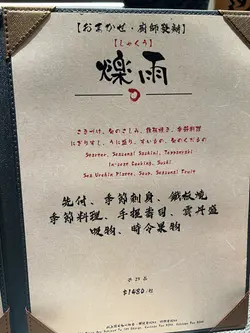 【おまかせ・廚師發辦】
【しゃくう】
爍雨
さきづけ、旬のさしみ、鉄板焼き、季節料理
にぎりずし、うに盛り、すいもの、旬のくだもの
Starter, Seasonal Sashimi, Teppanyaki
In-season Cooking, Sushi
Sea Urchin Platter, Soup, Seasonal Fruit
先付、季節刺身、鐵板燒
季節料理、手握壽司、雲丹盛
吸物、時令菓物
$1480/位